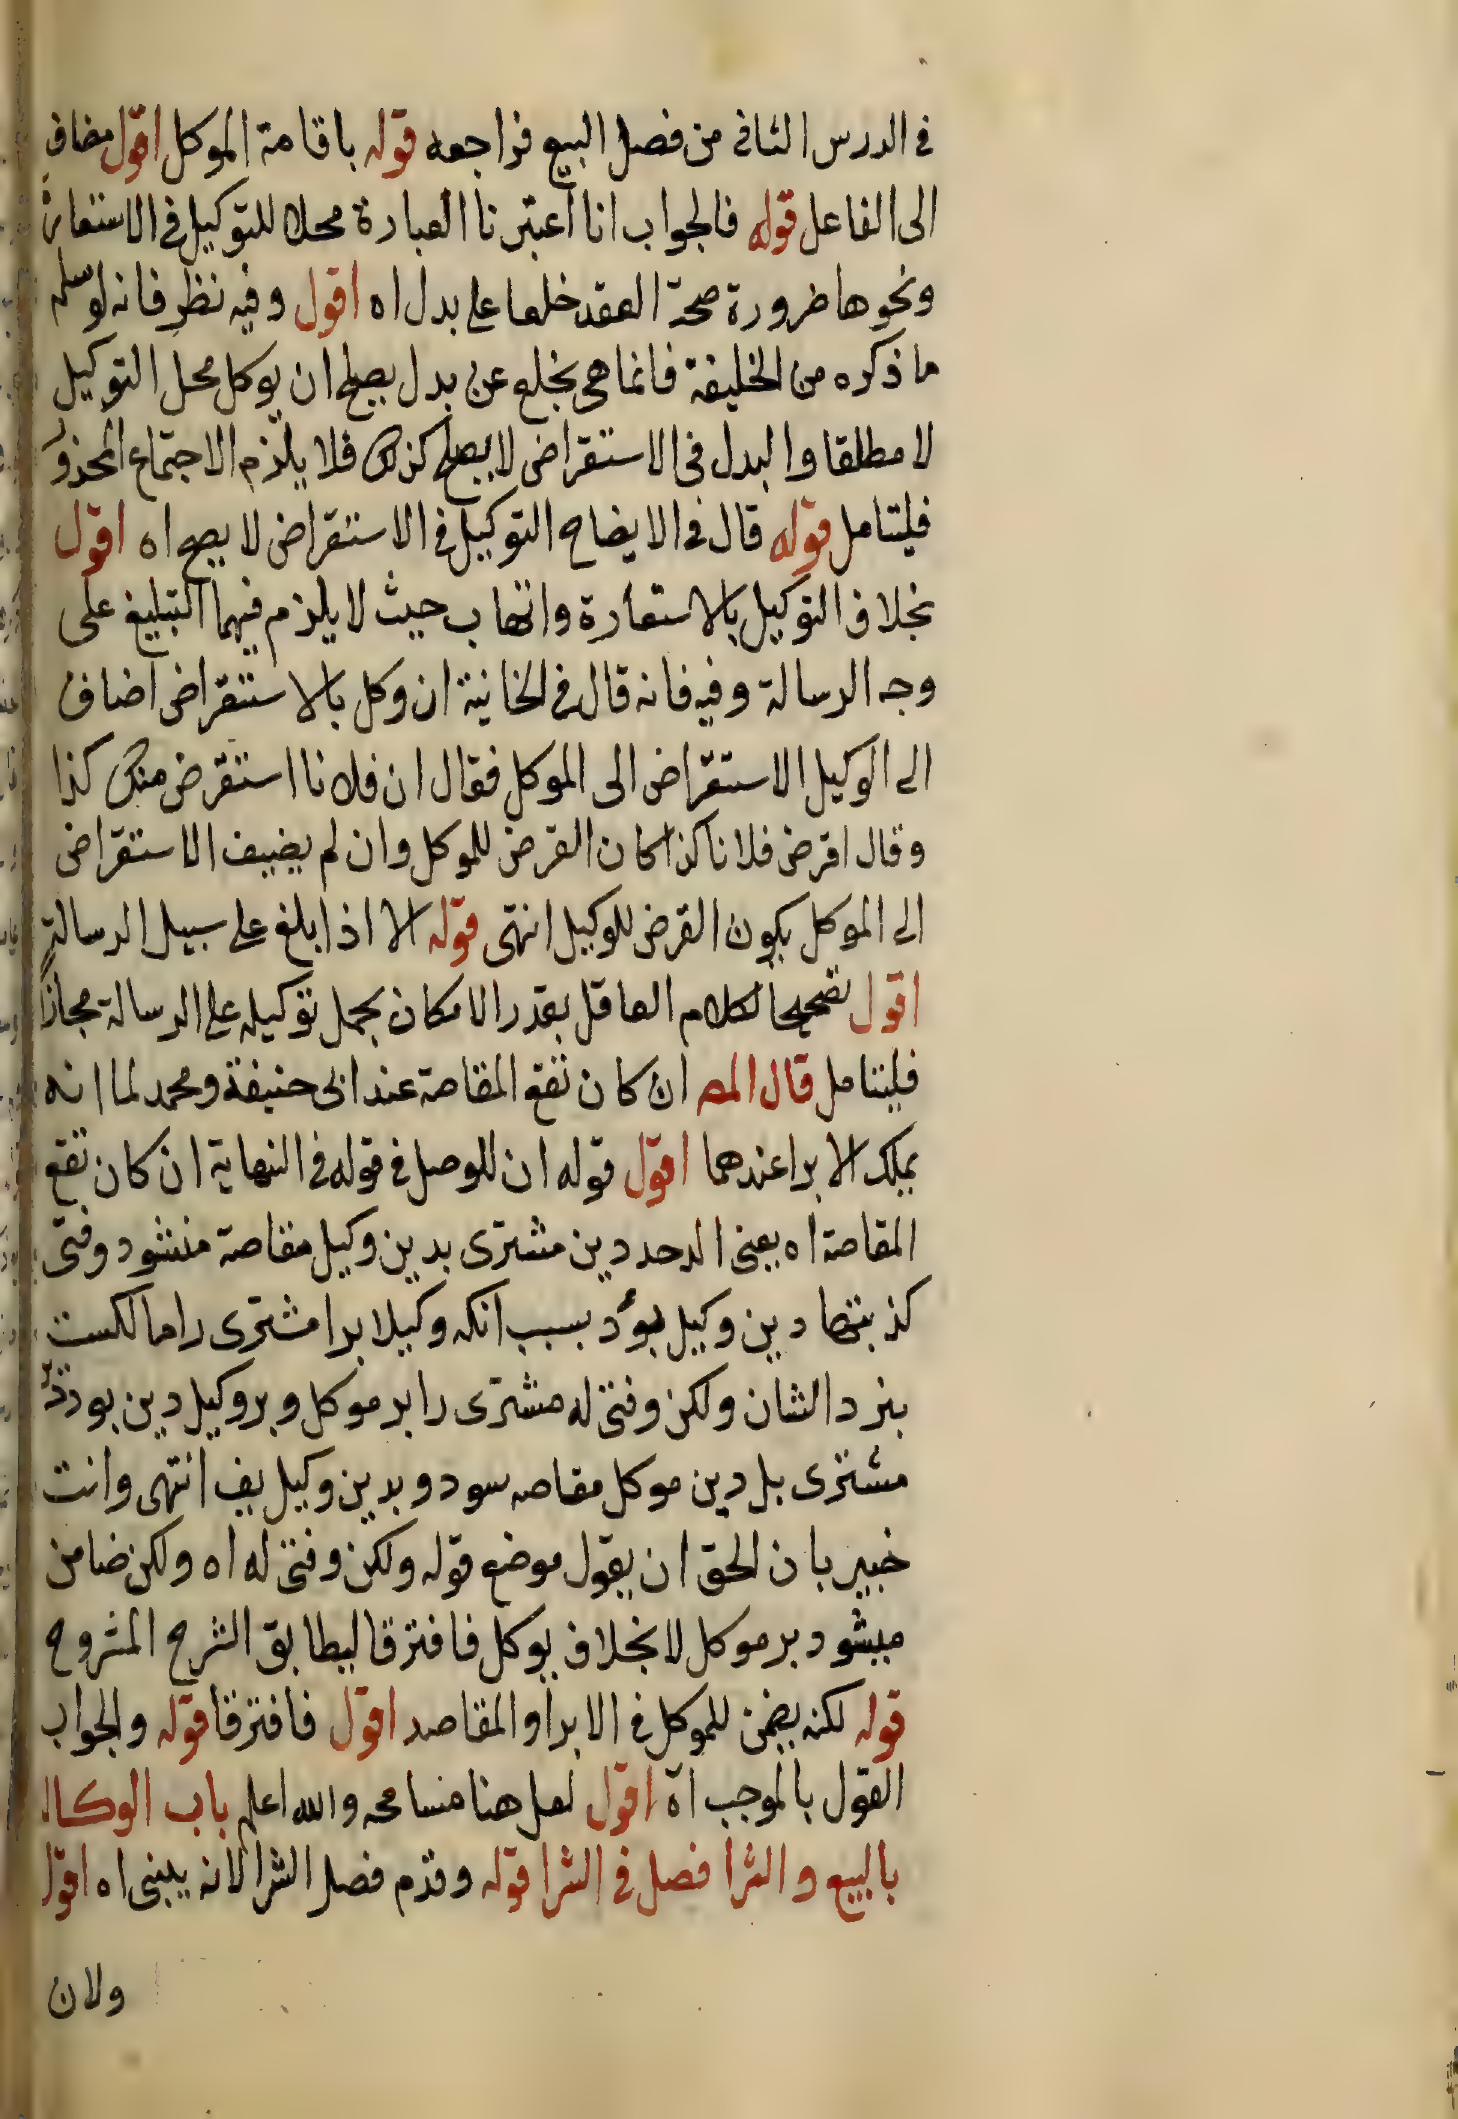 في الدرس الثاني من فصل البيع فراجعه قوله باقامة الموكل اقول مضاف
الى الفاعل قوله فالجواب انا اعتبرنا العبارة محلا للتوكيل في الاستعارة
ونحوها ضرورة صحة العقد خلعا على بدل اه اقول وفيه نظر فانه لو سلم
ما ذكره من الخليفة فانما هي بخلع عن بدل يصلح ان يوكل محل التوكيل
لا مطلقا والبدل في الاستقراض لا يصلح كذلك فلا يلزم الاجتماع المحذور
فليتامل قوله قال في الايضاح التوكيل في الاستقراض لا يصح اه اقول
بخلاف التوكيل بالاستعارة واتهاب حيث لا يلزم فيهما التبليغ على
وجه الرسالة وفيه فانه قال في الخانية ان وكل بالاستقراض اضاف
الى الوكيل الاستقراض الى الموكل فقال ان فلانا استقرض منك كذا
وقال اقرض فلانا كذا كان القرض للموكل وان لم يضيف الاستقراض
الى الموكل يكون القرض للوكيل انتهى قوله الا اذا بلغ على سبيل الرسالة
اقول تصحيحا لكلام العاقل بقدر الامكان يحمل توكيله على الرسالة مجازا
فليتامل قال المص ان كان تقع المقاصة عند ابي حنيفة ومحمد لما انه
يملك الابرا عندهما اقول قوله ان للوصل في قوله في النهاية ان كان تقع
المقاصة اه يعني الدحد دين مشترى بدين وكيل مقاصة منشود وفتى
كذ بتنها دين وكيل بود بسبب انكه وكيلا برا مشترى را مالكست
بنزد الشان ولكن وفتى له مشترى را بر موكل وبر وكيل دين بود
مشترى بل دين موكل مقاصه سود و بدين وكيل يف انتهى وانت
خبير بان الحق ان يقول موضع قوله ولكن وفتى له اه ولكن ضامن
ميشود بر موكل لا بخلاف يوكل فافترقا ليطابق الشرح المشروح
قوله لكنه يضمن للموكل في الابرا والمقاصد اقول فافترقا قوله والجواب
القول بالموجب اه اقول لعل هنا مسامحه والله اعلم باب الوكالة
بالبيع والشرا فصل في الشرا قوله وقدم فصل الشرا لانه يبنى اه اقول
ولان